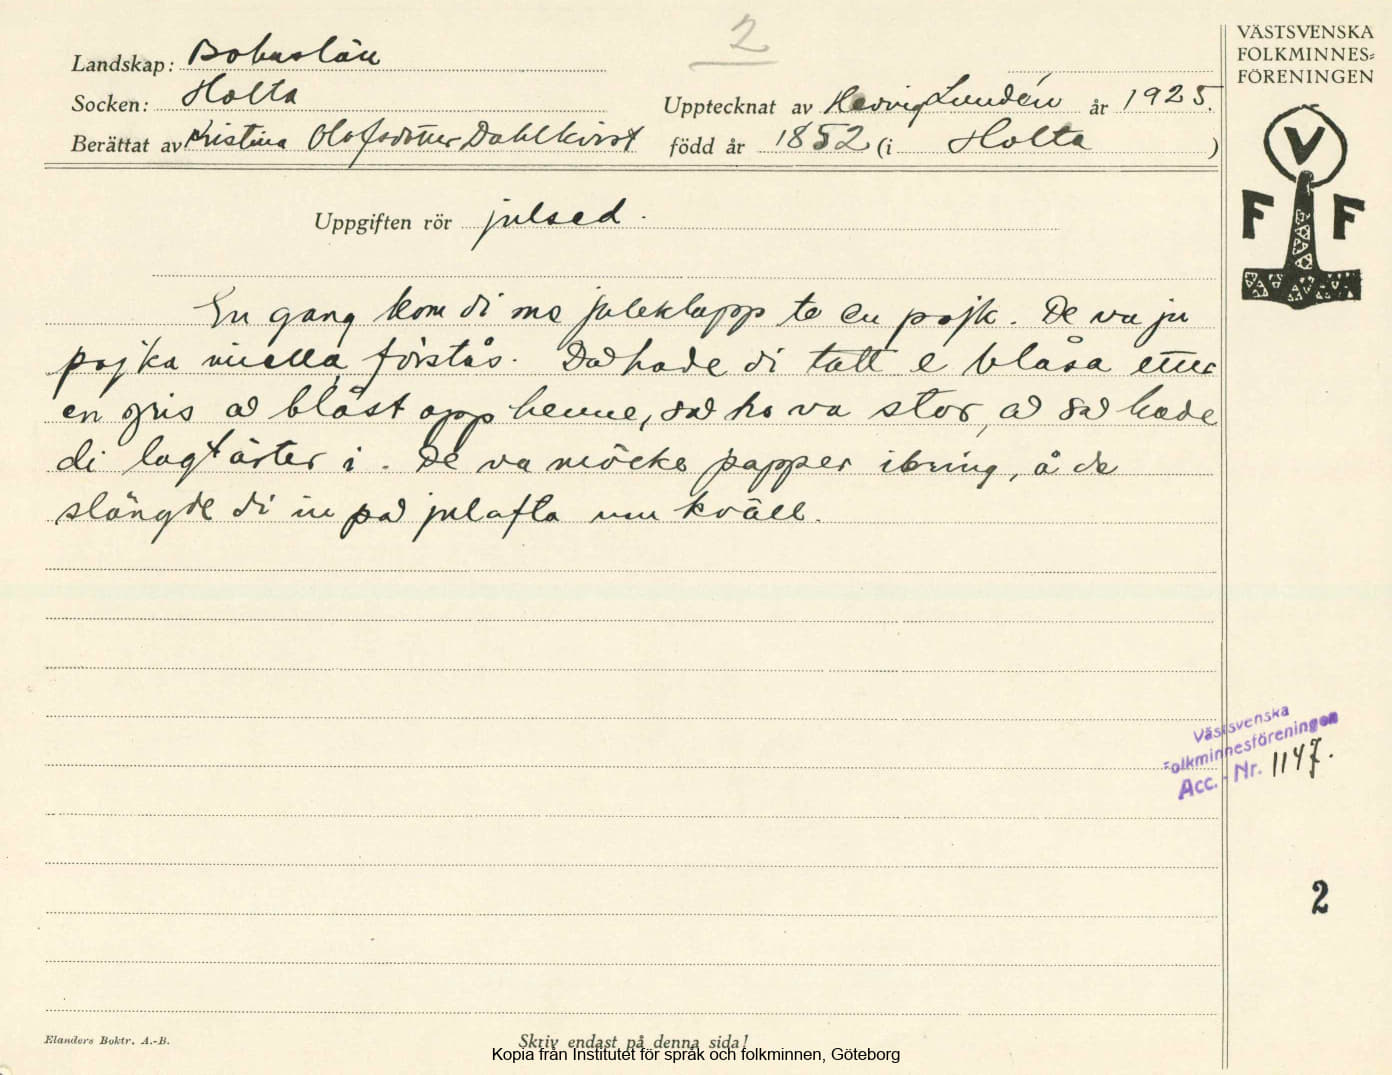 2
VÄSTSVENSKA
FOLKMINNES=
FÖRENINGEN
Landskap: Bohuslän
Socken: Holta
Upptecknat av Hedvig Lundén år 1925.
Berättat av Kristina Olofsdotter Dahlkvist
född år 1852 (i Holta )
V
F F
Uppgiften rör julsed.
En gang kom di me juleklapp te en pojk. De va ju
pojka mella, förstås. Då hade di tatt e blåsa etter
en gris å blåst opp henne, så ho va stor, å så hade
di lagt ärter i. De va möcke papper ikring, å de
slängde di in på julafta um kväll.
Västsvenska
Folkminnesföreningen
Acc. - Nr. 1147.
2
Elanders Boktr. A.-B.
Skriv endast på denna sida!
Kopia från Institutet för språk och folkminnen, Göteborg